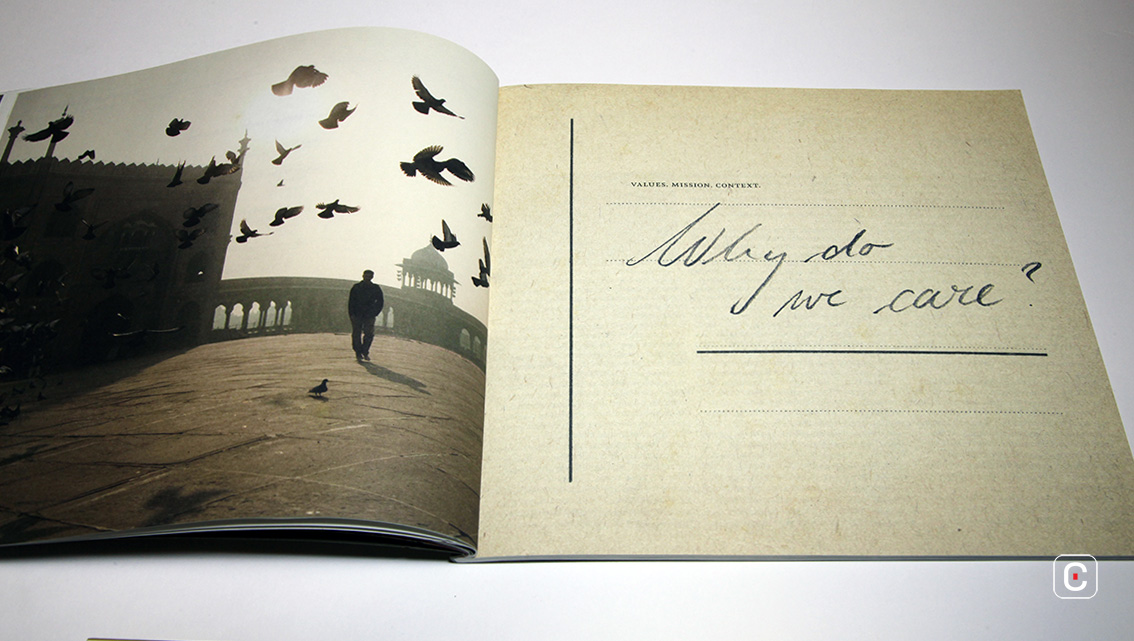 VALUES, MISSION, CONTEXT.
Why do
we care?
C